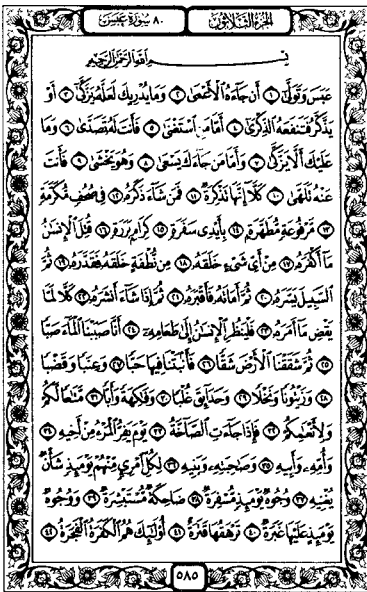 الجزء الثلاثون ٨٠ سورة عبس
بِسْمِ اللَّهِ الرَّحْمَٰنِ الرَّحِيمِ
عَبَسَ وَتَوَلَّىٰٓ ١ أَن جَآءَهُ ٱلْأَعْمَىٰ ٢ وَمَا يُدْرِيكَ لَعَلَّهُۥ يَزَّكَّىٰٓ ٣ أَوْ
يَذَّكَّرُ فَتَنفَعَهُ ٱلذِّكْرَىٰٓ ٤ أَمَّا مَنِ ٱسْتَغْنَىٰ ٥ فَأَنتَ لَهُۥ تَصَدَّىٰ ٦ وَمَا
عَلَيْكَ أَلَّا يَزَّكَّىٰ ٧ وَأَمَّا مَن جَآءَكَ يَسْعَىٰ ٨ وَهُوَ يَخْشَىٰ ٩ فَأَنتَ
عَنْهُ تَلَهَّىٰ ١٠ كَلَّآ إِنَّهَا تَذْكِرَةٌ ١١ فَمَن شَآءَ ذَكَرَهُۥ ١٢ فِى صُحُفٍ مُّكَرَّمَةٍ
١٣ مَّرْفُوعَةٍ مُّطَهَّرَةٍۭ ١٤ بِأَيْدِى سَفَرَةٍ ١٥ كِرَامٍۭ بَرَرَةٍ ١٦ قُتِلَ ٱلْإِنسَٰنُ
مَآ أَكْفَرَهُۥ ١٧ مِنْ أَىِّ شَىْءٍ خَلَقَهُۥ ١٨ مِن نُّطْفَةٍ خَلَقَهُۥ فَقَدَّرَهُۥ ١٩ ثُمَّ
ٱلسَّبِيلَ يَسَّرَهُۥ ٢٠ ثُمَّ أَمَاتَهُۥ فَأَقْبَرَهُۥ ٢١ ثُمَّ إِذَا شَآءَ أَنشَرَهُۥ ٢٢ كَلَّا لَمَّا
يَقْضِ مَآ أَمَرَهُۥ ٢٣ فَلْيَنظُرِ ٱلْإِنسَٰنُ إِلَىٰ طَعَامِهِۦٓ ٢٤ أَنَّا صَبَبْنَا ٱلْمَآءَ صَبًّا
٢٥ ثُمَّ شَقَقْنَا ٱلْأَرْضَ شَقًّا ٢٦ فَأَنۢبَتْنَا فِيهَا حَبًّا ٢٧ وَعِنَبًا وَقَضْبًا
٢٨ وَزَيْتُونًا وَنَخْلًا ٢٩ وَحَدَآئِقَ غُلْبًا ٣٠ وَفَٰكِهَةً وَأَبًّا ٣١ مَّتَٰعًا لَّكُمْ
وَلِأَنْعَٰمِكُمْ ٣٢ فَإِذَا جَآءَتِ ٱلصَّآخَّةُ ٣٣ يَوْمَ يَفِرُّ ٱلْمَرْءُ مِنْ أَخِيهِ ٣٤
وَأُمِّهِۦ وَأَبِيهِ ٣٥ وَصَٰحِبَتِهِۦ وَبَنِيهِ ٣٦ لِكُلِّ ٱمْرِئٍ مِّنْهُمْ يَوْمَئِذٍ شَأْنٌ
يُغْنِيهِ ٣٧ وُجُوهٌ يَوْمَئِذٍ مُّسْفِرَةٌ ٣٨ ضَاحِكَةٌ مُّسْتَبْشِرَةٌ ٣٩ وَوُجُوهٌ
يَوْمَئِذٍ عَلَيْهَا غَبَرَةٌ ٤٠ تَرْهَقُهَا قَتَرَةٌ ٤١ أُو۟لَٰٓئِكَ هُمُ ٱلْكَفَرَةُ ٱلْفَجَرَةُ ٤٢
٥٨٥